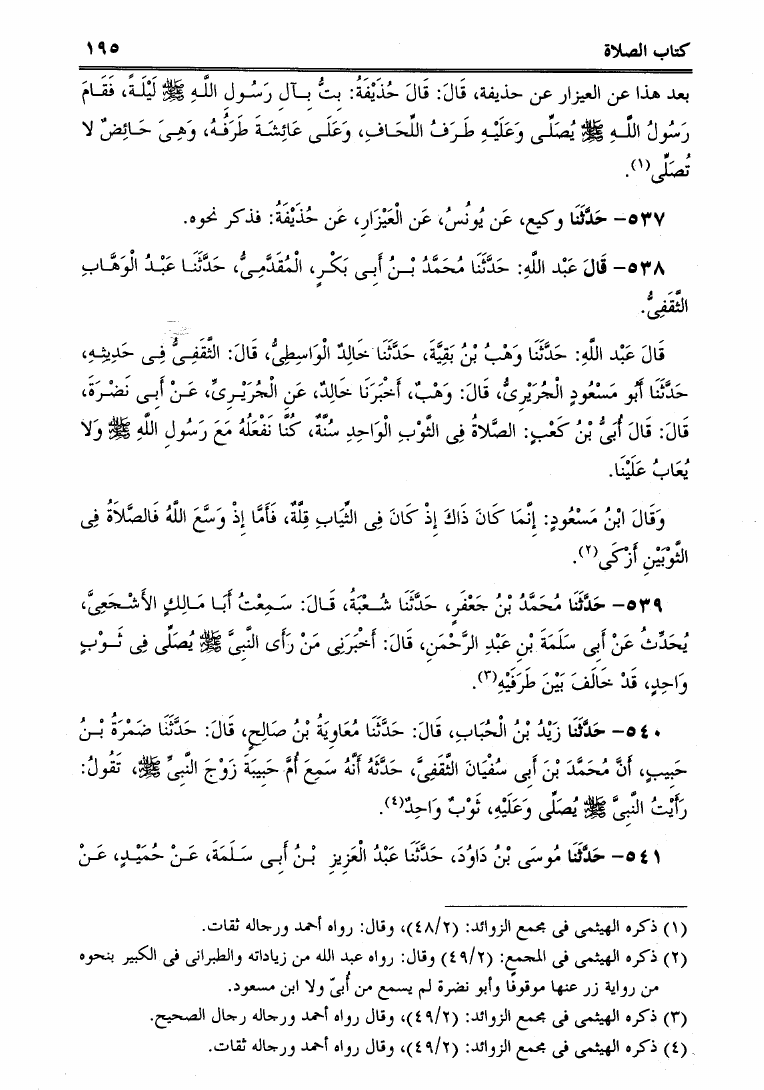 كتاب الصلاة ١٩٥
بعد هذا عن العيزار عن حذيفة، قَالَ: قَالَ حُذَيْفَةُ: بِتُّ بِـآلِ رَسُـولِ اللَّـهِ ﷺ لَيْلَـةً، فَقَـامَ
رَسُولُ اللَّـهِ ﷺ يُصَلِّى وَعَلَيْـهِ طَـرَفُ اللِّحَـافِ، وَعَلَـى عَائِشَـةَ طَرَفُـهُ، وَهِـىَ حَـائِضٌ لا
تُصَلِّى(١).
٥٣٧– حَدَّثَنَا وكيع، عَن يُونُسُ، عَن الْعَيْزَارِ، عَن حُذَيْفَةُ: فذكر نحوه.
٥٣٨– قَالَ عَبْد اللَّهِ: حَدَّثَنَا مُحَمَّدُ بْـنُ أَبِـى بَكْـرٍ، الْمُقَدَّمِـىُّ، حَدَّثَنَـا عَبْـدُ الْوَهَّـابِ
الثَّقَفِىُّ.
قَالَ عَبْد اللَّهِ: حَدَّثَنَا وَهْبُ بْنُ بَقِيَّةَ، حَدَّثَنَا خَالِدٌ الْوَاسِطِىُّ، قَالَ: الثَّقَفِـىُّ فِـى حَدِيثِـهِ،
حَدَّثَنَا أَبُو مَسْعُودٍ الْجُرَيْرِىُّ، قَالَ: وَهْبٌ، أَخْبَرَنَا خَالِدٌ، عَنِ الْجُرَيْـرِىِّ، عَـنْ أَبـى نَضْـرَةَ،
قَالَ: قَالَ أُبَىُّ بْنُ كَعْبٍ: الصَّلاةُ فِى الثَّوْبِ الْوَاحِدِ سُنَّةٌ، كُنَّا نَفْعَلُهُ مَعَ رَسُولِ اللَّهِ ﷺ وَلا
يُعَابُ عَلَيْنَا.
وَقَالَ ابْنُ مَسْعُودٍ: إِنَّمَا كَانَ ذَاكَ إِذْ كَانَ فِى الثِّيَابِ قِلَّةٌ، فَأَمَّا إِذْ وَسَّعَ اللَّهُ فَالصَّلاَةُ فِى
الثَّوْبَيْنِ أَزْكَى(٢).
٥٣٩– حَدَّثَنَا مُحَمَّدُ بْنُ جَعْفَرٍ، حَدَّثَنَا شُـعْبَةُ، قَـالَ: سَـمِعْتُ أَبَـا مَـالِكٍ الأَشْـجَعِىَّ،
يُحَدِّثُ عَنْ أَبِى سَلَمَةَ بْنِ عَبْدِ الرَّحْمَنِ، قَالَ: أَخْبَرَنِى مَنْ رَأَى النَّبِىَّ ﷺ يُصَلِّى فِى ثَـوْبٍ
وَاحِدٍ، قَدْ خَالَفَ بَيْنَ طَرَفَيْهِ(٣).
٥٤٠– حَدَّثَنَا زَيْدُ بْنُ الْحُبَابِ، قَالَ: حَدَّثَنَا مُعَاوِيَةُ بْنُ صَالِحٍ، قَالَ: حَدَّثَنَا ضَمْرَةُ بْـنُ
حَبِيبٍ، أَنَّ مُحَمَّدَ بْنَ أَبِى سُفْيَانَ الثَّقَفِىَّ، حَدَّثَهُ أَنَّهُ سَمِعَ أُمَّ حَبِيبَةَ زَوْجَ النَّبِىِّ ﷺ، تَقُولُ:
رَأَيْتُ النَّبِىَّ ﷺ يُصَلِّى وَعَلَيْهِ، ثَوْبٌ وَاحِدٌ(٤).
٥٤١– حَدَّثَنَا مُوسَى بْنُ دَاوُدَ، حَدَّثَنَا عَبْدُ الْعَزِيزِ بْـنُ أَبـى سَـلَمَةَ، عَـنْ حُمَيْـدٍ، عَـنْ
(١) ذكره الهيثمى فى مجمع الزوائد: (٤٨/٢)، وقال: رواه أحمد ورجاله ثقات.
(٢) ذكره الهيثمى فى المجمع: (٤٩/٢) وقال: رواه عبد الله من زياداته والطبرانى فى الكبير بنحوه
من رواية زر عنها موقوفًا وأبو نضرة لم يسمع من أُبىّ ولا ابن مسعود.
(٣) ذكره الهيثمى فى مجمع الزوائد: (٤٩/٢)، وقال رواه أحمد ورجاله رجال الصحيح.
(٤) ذكره الهيثمى فى مجمع الزوائد: (٤٩/٢)، وقال رواه أحمد ورجاله ثقات.